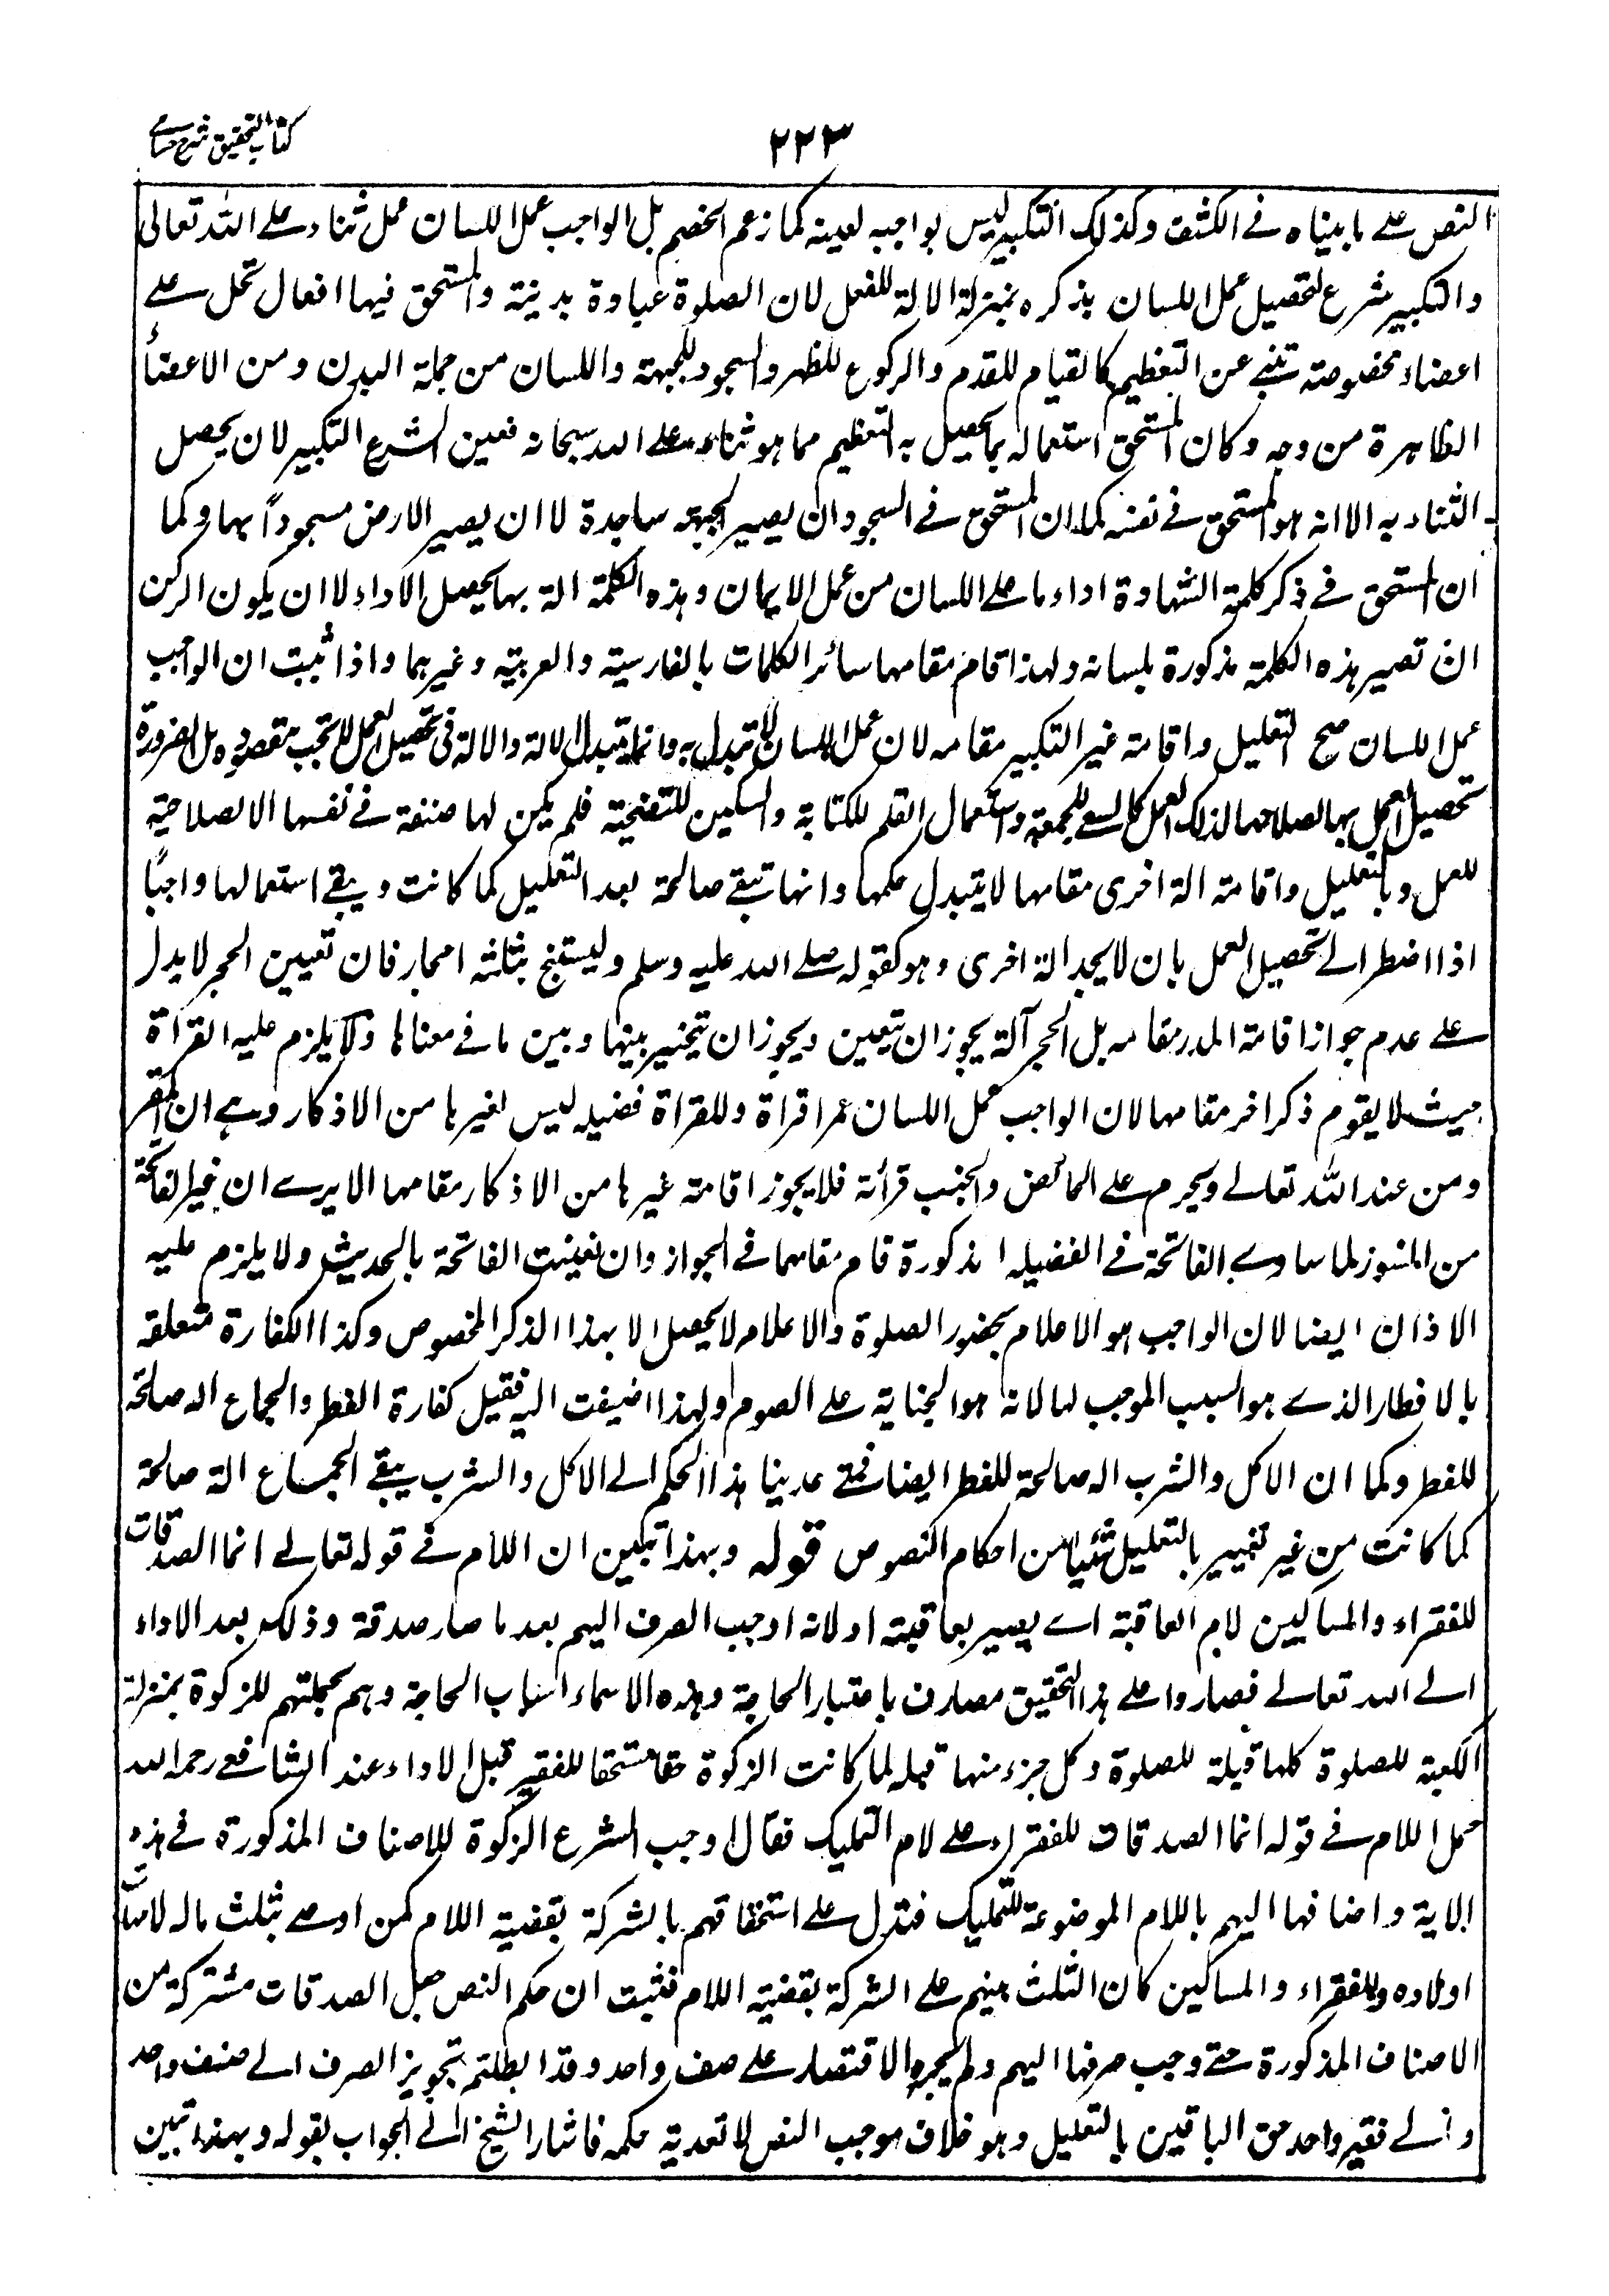 كتاب التحقيق شرح حسامى
٢٢٣
النص على ما بيناه فى الكشف وكذلك التكبير ليس بواجب لعينه كما زعم الخصم بل الواجب عمل اللسان عمل ثناء على الله تعالى
والتكبير شرع لتحصيل عمل اللسان بذكره بمنزلة الالة للفعل لان الصلوة عبادة بدنية والمستحق فيها افعال تحل على
اعضاء مخصوصة تنبئ عن التعظيم كالقيام للقدم والركوع للظهر والسجود للجبهة واللسان من جملة البدن ومن الاعضاء
الظاهرة من وجه وكان المستحق استعماله بما يحصل به التعظيم مما هو ثناء على الله سبحانه فعين الشرع التكبير لان يحصل
الثناء به الا انه هو المستحق فى نفسه كما ان المستحق فى السجود ان يصير الجبهة ساجدة لا ان يصير الارض مسجوداً بها وكما
ان المستحق فى ذكر كلمة الشهادة اداء ما على اللسان من عمل الايمان وهذه الكلمة الة بها يحصل الاداء لا ان يكون الركن
ان تصير هذه الكلمة مذكورة بلسانه ولهذا قام مقامها سائر الكلمات بالفارسية والعربية وغيرهما واذا ثبت ان الواجب
عمل اللسان صح التعليل واقامة غير التكبير مقامه لان عمل اللسان لا تبدل به وانما تبدل الالة والالة فى تحصيل العمل لا تجب مقصودة بل لضرورة
تحصيل العمل بها لصلاحها لذلك العمل كالسعى للجمعة واستعمال القلم للكتابة والسكين للتضحية فلم يكن لها صفة فى نفسها الا لصلاحية
للعمل وبالتعليل واقامة الة اخرى مقامها لا يتبدل حكمها وانها تبقى صالحة بعد التعليل كما كانت ويبقى استعمالها واجباً
اذا اضطر الى تحصيل العمل بان لا يجد الة اخرى وهو كقوله صلى الله عليه وسلم وليستنج بثلثة احجار فان تعيين الحجر لا يدل
على عدم جواز اقامة المدر مقامه بل الحجر آلة يجوز ان يتعين ويجوز ان يتخير بينها وبين ما فى معناها ولا يلزم عليه القراة
حيث لا يقوم ذكر اخر مقامها لان الواجب عمل اللسان قراة وللقراة فضيلة ليس لغيرها من الاذكار وهى ان
ومن عند الله تعالى ويحرم على الحائض والجنب قرأته فلا يجوز اقامة غيرها من الاذكار مقامها الا يرى ان غير الفاتحة
من لما ساوى الفاتحة فى الفضيلة المذكورة قام مقامها فى الجواز وان تعينت الفاتحة بالحديث ولا يلزم عليه
الاذان ايضا لان الواجب هو الاعلام بحضور الصلوة والاعلام لا يحصل الا بهذا الذكر المخصوص وكذا الكفارة متعلقة
بالافطار الذى هو السبب الموجب لها لانه هو الجناية على الصوم ولهذا اضيفت اليه فقيل كفارة الفطر والجماع الة صالحة
للفطر وكما ان الاكل والشرب الة صالحة للفطر ايضا فمتى عدينا هذا الحكم الى الاكل والشرب يبقى الجماع الة صالحة
كما كانت من غير تغيير بالتعليل شيئا من احكام النصوص قوله وبهذا تبين ان اللام فى قوله تعالى انما الصدقات
للفقراء والمساكين لام العاقبة اى يصير بعاقبته او لانه اوجب الصرف اليهم بعد ما صار صدقة وذلك بعد الاداء
الى الله تعالى فصاروا على هذا التحقيق مصارف باعتبار الحاجة وهذه الاسماء اسباب الحاجة وهم بجملتهم للزكوة بمنزلة
الكعبة للصلوة كلها قبلة للصلوة وكل جزء منها قبلة لما كانت الزكوة حقا مستحقا للفقير قبل الاداء عند الشافعى رحمه الله
حمل اللام فى قوله انما الصدقات للفقراء على لام التمليك فقال اوجب الشرع الزكوة للاصناف المذكورة فى هذه
الاية واضافها اليهم باللام الموضوعة للتمليك فتدل على استحقاقهم بالشركة بقضية اللام كمن اوصى بثلث ماله لامهات
اولاده وللفقراء والمساكين كان الثلث بينهم على الشركة بقضية اللام فثبت ان حكم النص جعل الصدقات مشتركة من
الاصناف المذكورة حتى وجب صرفها اليهم ولم يجز الاقتصار على صنف واحد وقد ابطلتم بتجويز الصرف الى صنف واحد
والى فقير واحد حق الباقين بالتعليل وهو خلاف موجب النص لا تعدية حكمه فاشار الشيخ الى الجواب بقوله وبهذا تبين